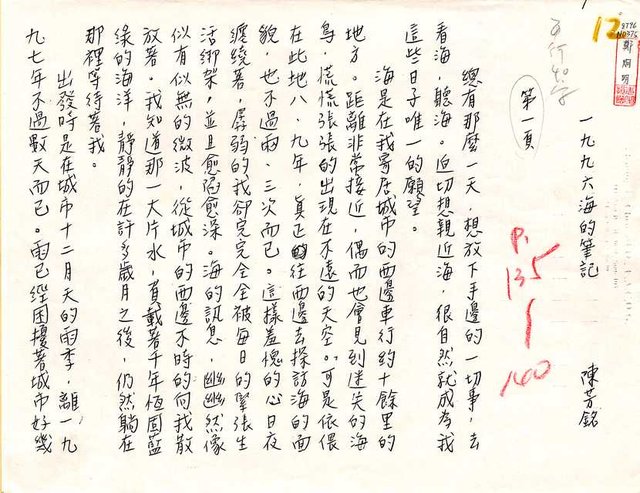 一九九六海的筆記
陳芳銘
第一頁
總有那麼一天,想放下手邊的一切事,去
看海,聽海。迫切想親近海,很自然就成為我
這些日子唯一的願望。
海是在我寄居城市的西邊車行約十餘里的
地方。距離非常接近,偶而也會見到迷失的海
鳥,慌慌張張的出現在不遠的天空。可是依偎
在此地八、九年,真正往西邊去探訪海的面
貌,也不過兩、三次而已。這樣羞愧的心日夜
纏繞著,孱弱的我卻完完全全被每日的緊張生
活綁架,並且愈陷愈深。海的訊息,幽幽然像
似有似無的微波,從城市的西邊不時的向我散
放著。我知道那一大片水,負載著千年恆固藍
綠的海洋,靜靜的在計多歲月之後,仍然躺在
那裡等待著我。
出發時是在城市十二月天的雨季,離一九
九七年不過數天而已。雨已經困擾著城市好幾
12
P.
135
160
鄭烱明